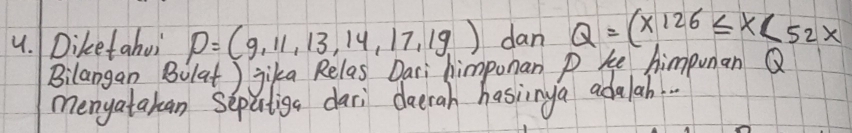 4. Diketahui P = (9, 11, 13, 14, 17, 19) dan Q = (x126 ≤ x < 52x
Bilangan Bulat) jika Relas Dari himpunan P ke himpunan Q
Menyatakan Sepertiga dari daerah hasiinya adalah...